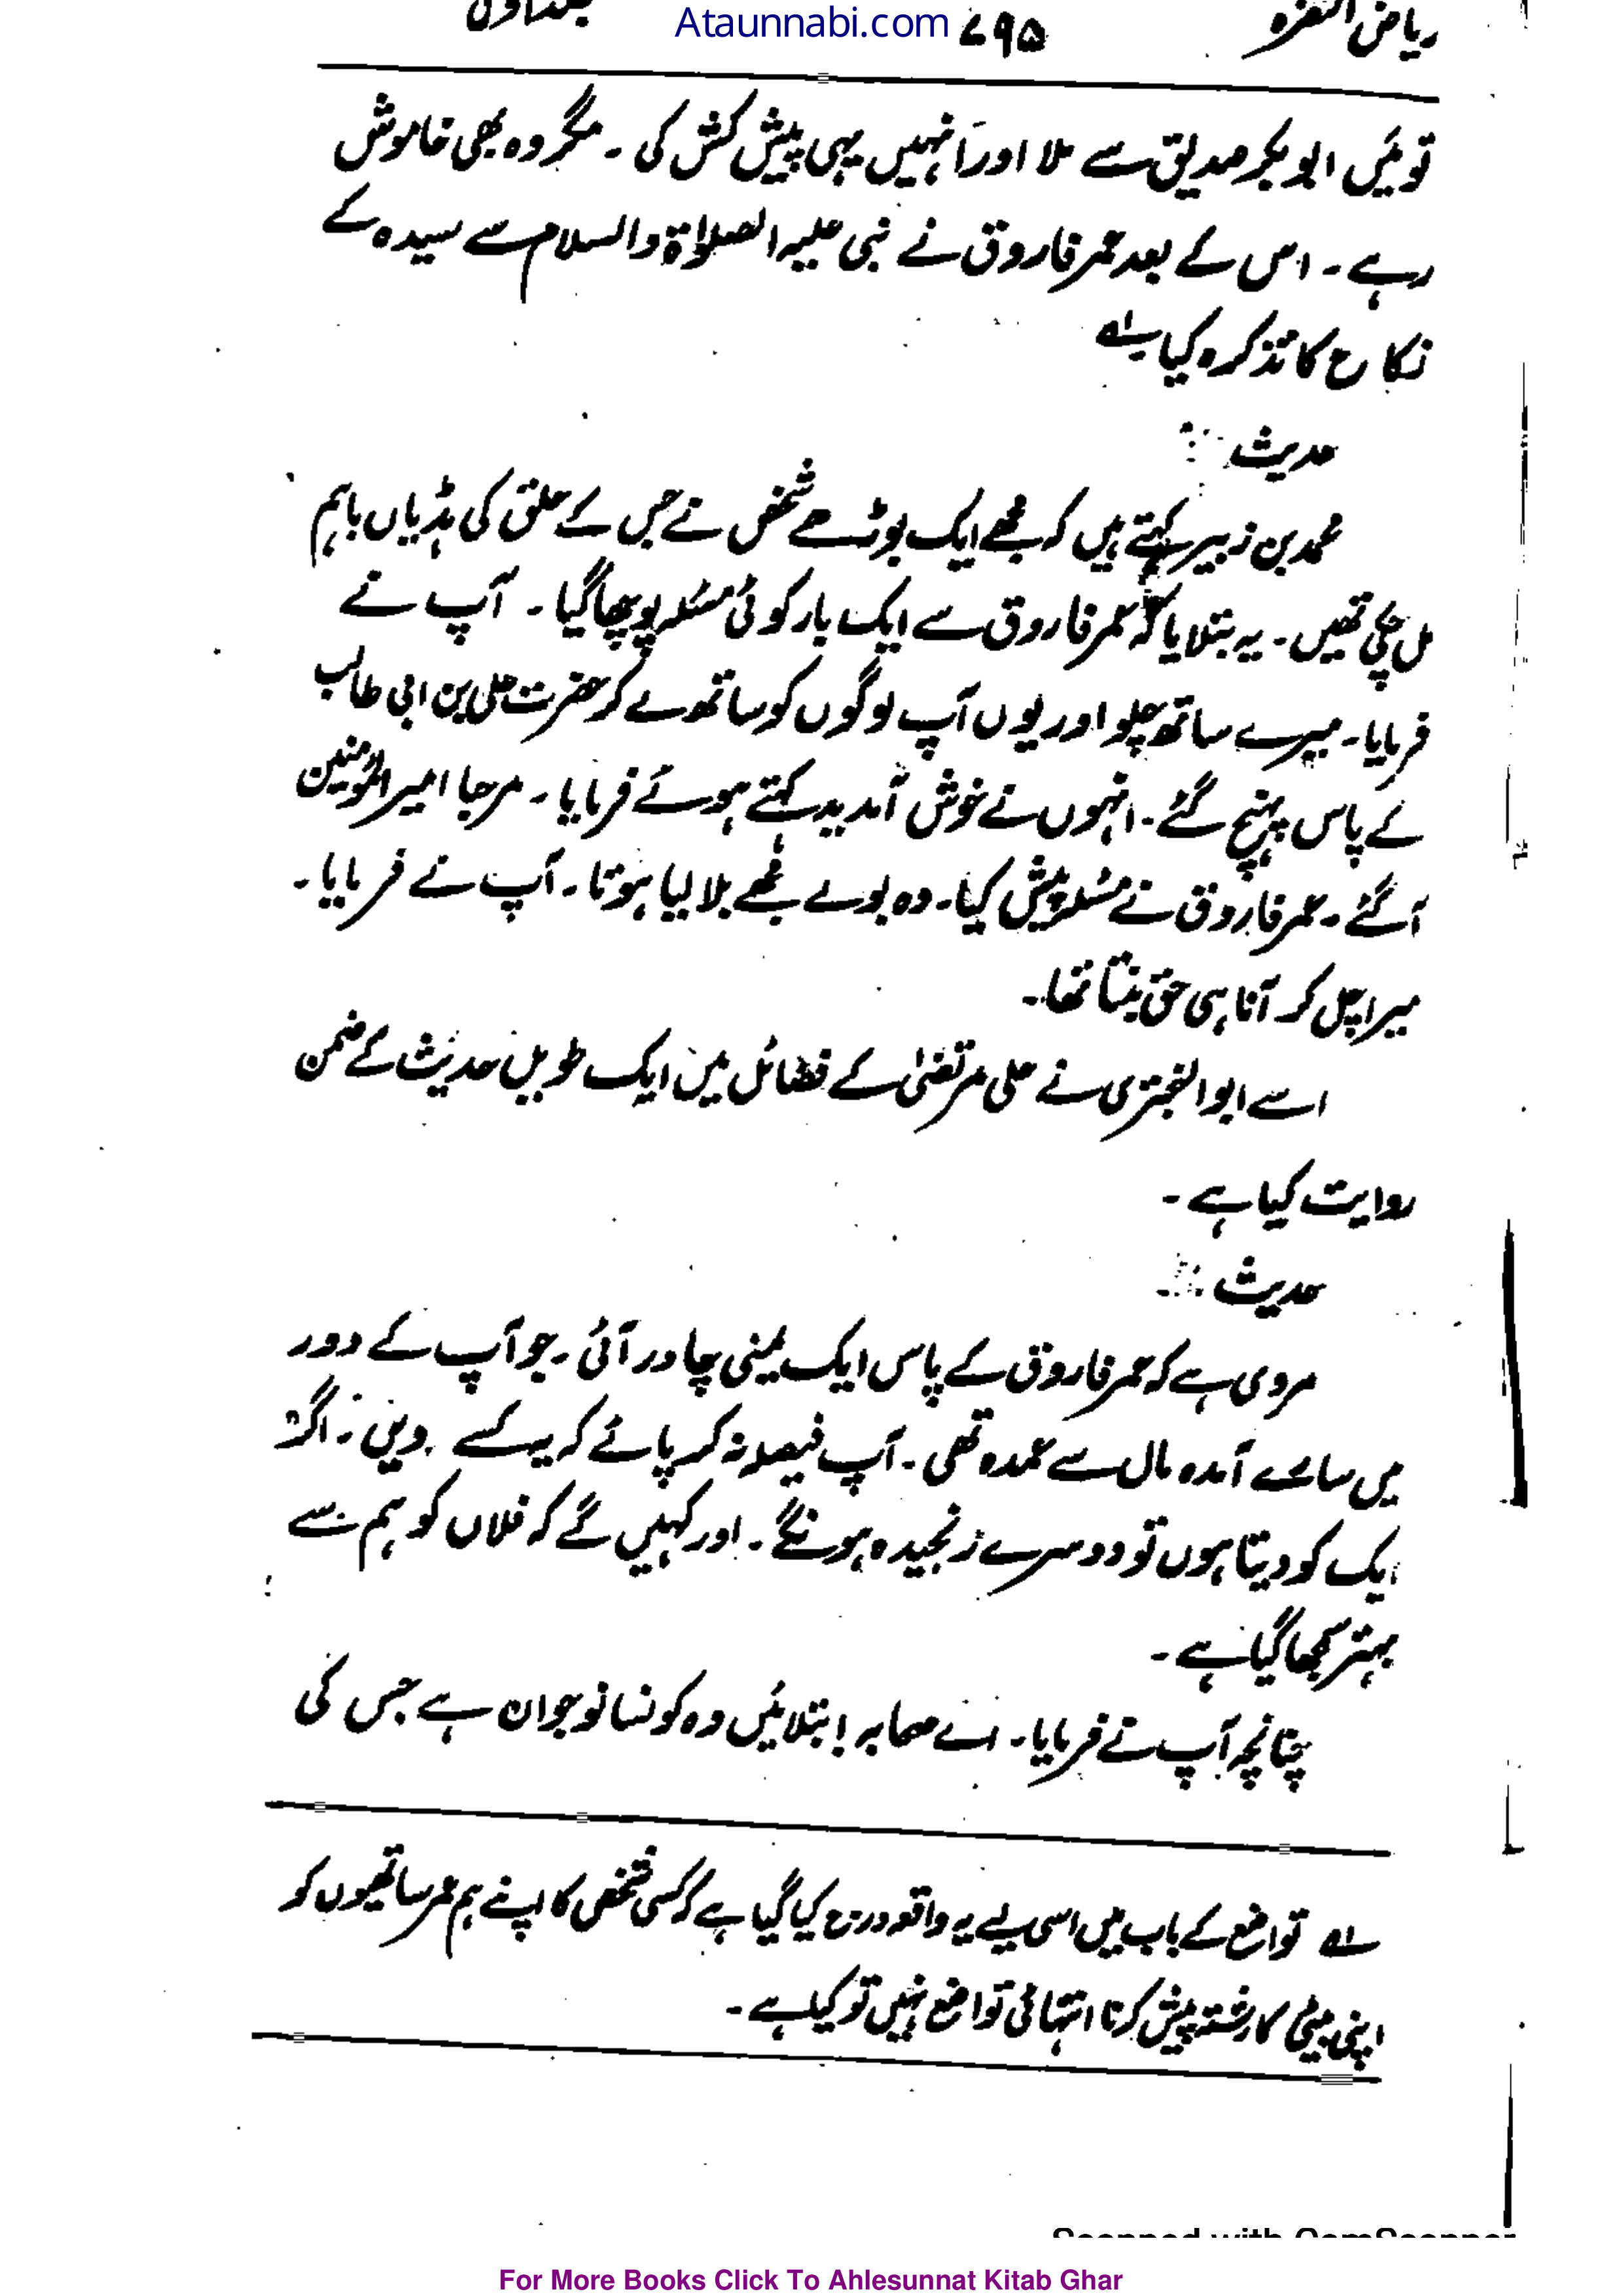 ریاض النضرہ Ataunnabi.com ۶۹۵ جلد اول
تو میَں ابو بکر صدیق سے ملا اور اَنہیں یہی پیش کش کی ۔ مگر وہ بھی خاموش
رہے ۔ اس کے بعد عمر فاروق نے نبی علیہ الصلاۃ والسلام سے سیدہ کے
نکاح کا تذکرہ کیا ۔ لہ
حدیث :
محمد بن زبیر کہتے ہیں کہ مجھے ایک بوڑھے شخص نے جس کے حلق کی ہڈیاں باہم
مل چکی تھیں ۔ یہ بتلایا کہ عمر فاروق سے ایک بار کوئی مسئلہ پوچھا گیا ۔ آپ نے
فرمایا ۔ میرے ساتھ چلو اور یوں آپ لوگوں کو ساتھ لے کر حضرت علی بن ابی طالب
کے پاس پہنچ گئے ۔ انہوں نے خوش آمدید کہتے ہوئے فرمایا ۔ مرحبا امیر المؤمنین
آگئے ۔ عمر فاروق نے مسئلہ پیش کیا ۔ وہ بولے مجھے بلا لیا ہوتا ۔ آپ نے فرمایا ۔
میرا چل کر آنا ہی حق بنتا تھا ۔
اسے ابو البختری نے علی مرتضیٰ کے فضائل میں ایک طویل حدیث کے ضمن
روایت کیا ہے ۔
حدیث :
مروی ہے کہ عمر فاروق کے پاس ایک یمنی چادر آئی ۔ جو آپ کے دور
میں سارے آمدہ مال سے عمدہ تھی ۔ آپ فیصلہ نہ کر پائے کہ یہ کسے دیں ۔ اگر
ایک کو دیتا ہوں تو دوسرے رنجیدہ ہونگے ۔ اور کہیں گے کہ فلاں کو ہم سے
بہتر سمجھا گیا ہے ۔
چنانچہ آپ نے فرمایا ۔ اے صحابہ ! بتلائیں وہ کونسا نوجوان ہے جس کی
لہ تواضع کے باب میں اسی لیے یہ واقعہ درج کیا گیا ہے کہ کسی شخص کا اپنے ہم عمر ساتھیوں کو
اپنی بیٹی کا رشتہ پیش کرنا انتہائی تواضع نہیں تو کیا ہے ۔
Scanned with CamScanner
For More Books Click To Ahlesunnat Kitab Ghar